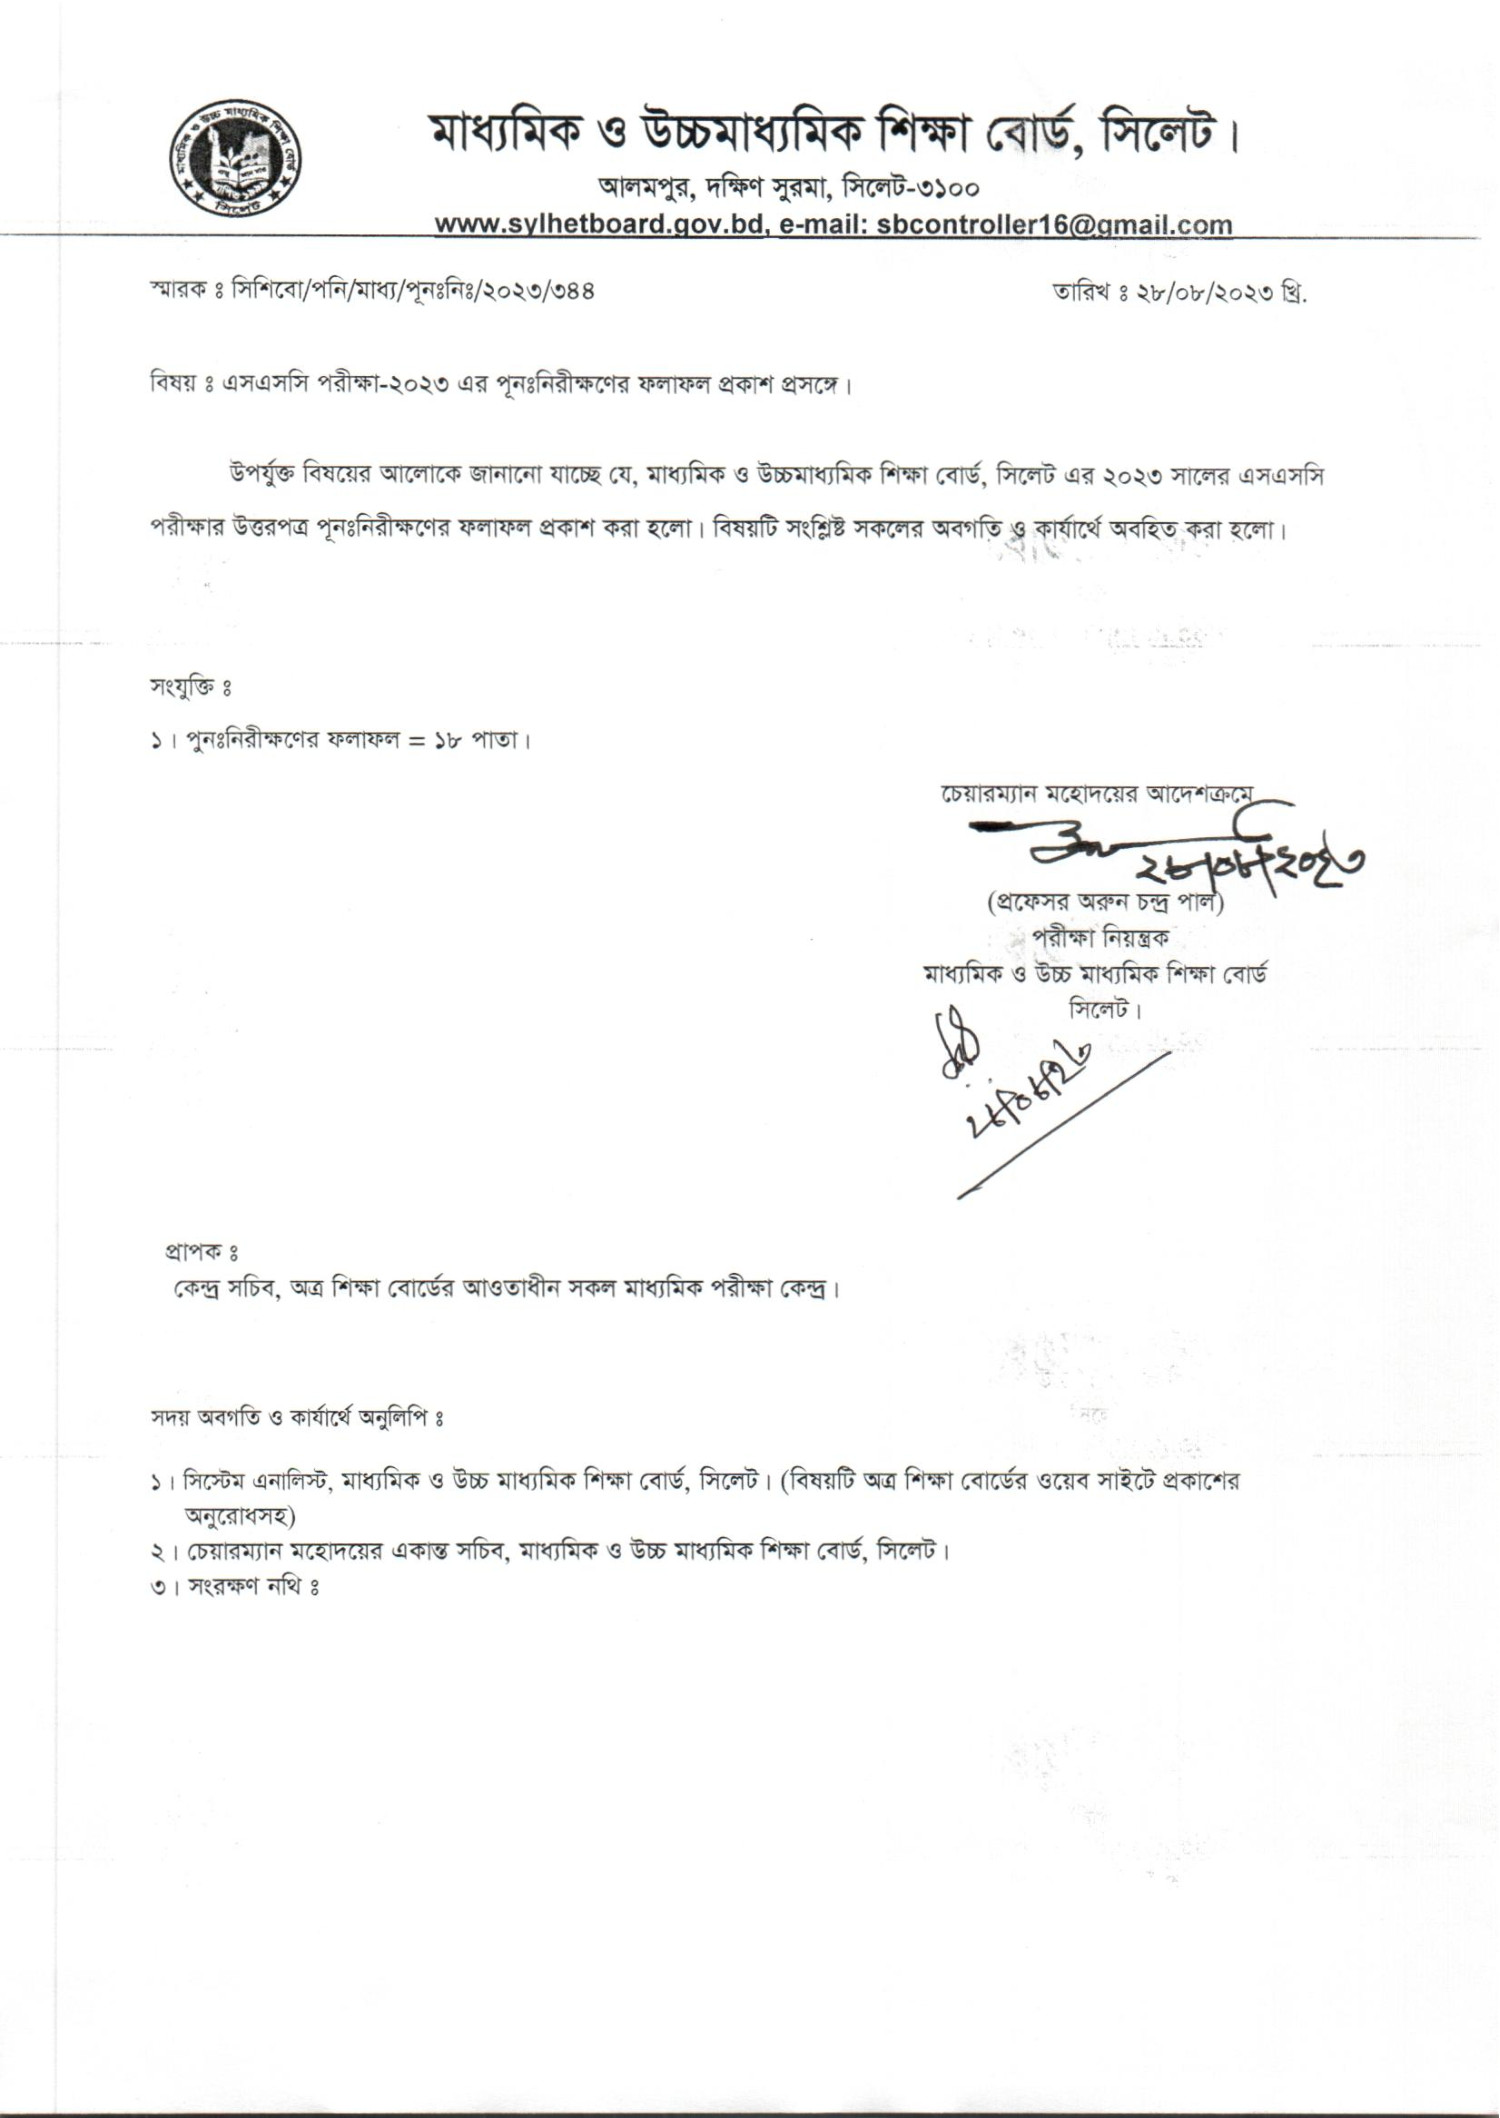 মাধ্যমিক ও উচ্চমাধ্যমিক শিক্ষা বোর্ড, সিলেট।
আলমপুর, দক্ষিণ সুরমা, সিলেট-৩১০০
www.sylhetboard.gov.bd, e-mail: sbcontroller16@gmail.com
মাধ্যমিক ও উচ্চ মাধ্যমিক শিক্ষা বোর্ড
সিলেট
স্মারক ঃ সিশিবো/পনি/মাধ্য/পূনঃনিঃ/২০২৩/৩৪৪
তারিখ ঃ ২৮/০৮/২০২৩ খ্রি.
বিষয় ঃ এসএসসি পরীক্ষা-২০২৩ এর পূনঃনিরীক্ষণের ফলাফল প্রকাশ প্রসঙ্গে।
উপর্যুক্ত বিষয়ের আলোকে জানানো যাচ্ছে যে, মাধ্যমিক ও উচ্চমাধ্যমিক শিক্ষা বোর্ড, সিলেট এর ২০২৩ সালের এসএসসি
পরীক্ষার উত্তরপত্র পূনঃনিরীক্ষণের ফলাফল প্রকাশ করা হলো। বিষয়টি সংশ্লিষ্ট সকলের অবগতি ও কার্যার্থে অবহিত করা হলো।
সংযুক্তি ঃ
১। পুনঃনিরীক্ষণের ফলাফল = ১৮ পাতা।
চেয়ারম্যান মহোদয়ের আদেশক্রমে
২৮/০৮/২০২৩
(প্রফেসর অরুন চন্দ্র পাল)
পরীক্ষা নিয়ন্ত্রক
মাধ্যমিক ও উচ্চ মাধ্যমিক শিক্ষা বোর্ড
সিলেট।
২৮/০৮/২৩
প্রাপক ঃ
কেন্দ্র সচিব, অত্র শিক্ষা বোর্ডের আওতাধীন সকল মাধ্যমিক পরীক্ষা কেন্দ্র।
সদয় অবগতি ও কার্যার্থে অনুলিপি ঃ
১। সিস্টেম এনালিস্ট, মাধ্যমিক ও উচ্চ মাধ্যমিক শিক্ষা বোর্ড, সিলেট। (বিষয়টি অত্র শিক্ষা বোর্ডের ওয়েব সাইটে প্রকাশের
অনুরোধসহ)
২। চেয়ারম্যান মহোদয়ের একান্ত সচিব, মাধ্যমিক ও উচ্চ মাধ্যমিক শিক্ষা বোর্ড, সিলেট।
৩। সংরক্ষণ নথি ঃ